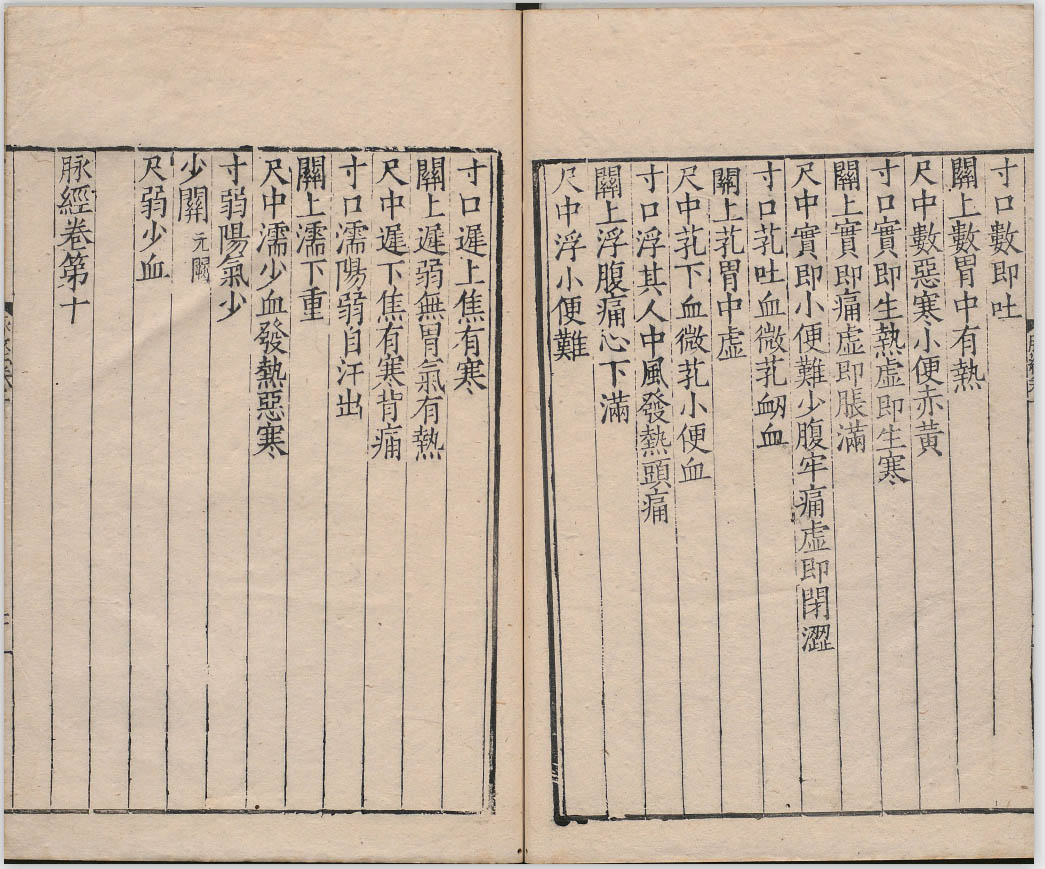 寸口數即吐
關上數胃中有熱
尺中數惡寒小便赤黃
寸口實即生熱虛即生寒
關上實即痛虛即脹滿
尺中實即小便難少腹牢痛虛即閉澀
寸口芤吐血微芤衂血
關上芤胃中虛
尺中芤下血微芤小便血
寸口浮其人中風發熱頭痛
關上浮腹痛心下滿
尺中浮小便難
寸口遲上焦有寒
關上遲弱無胃氣有熱
尺中遲下焦有寒背痛
寸口濡陽弱自汗出
關上濡下重
尺中濡少血發熱惡寒
寸弱陽氣少
少關 元闕
尺弱少血
脉經卷第十